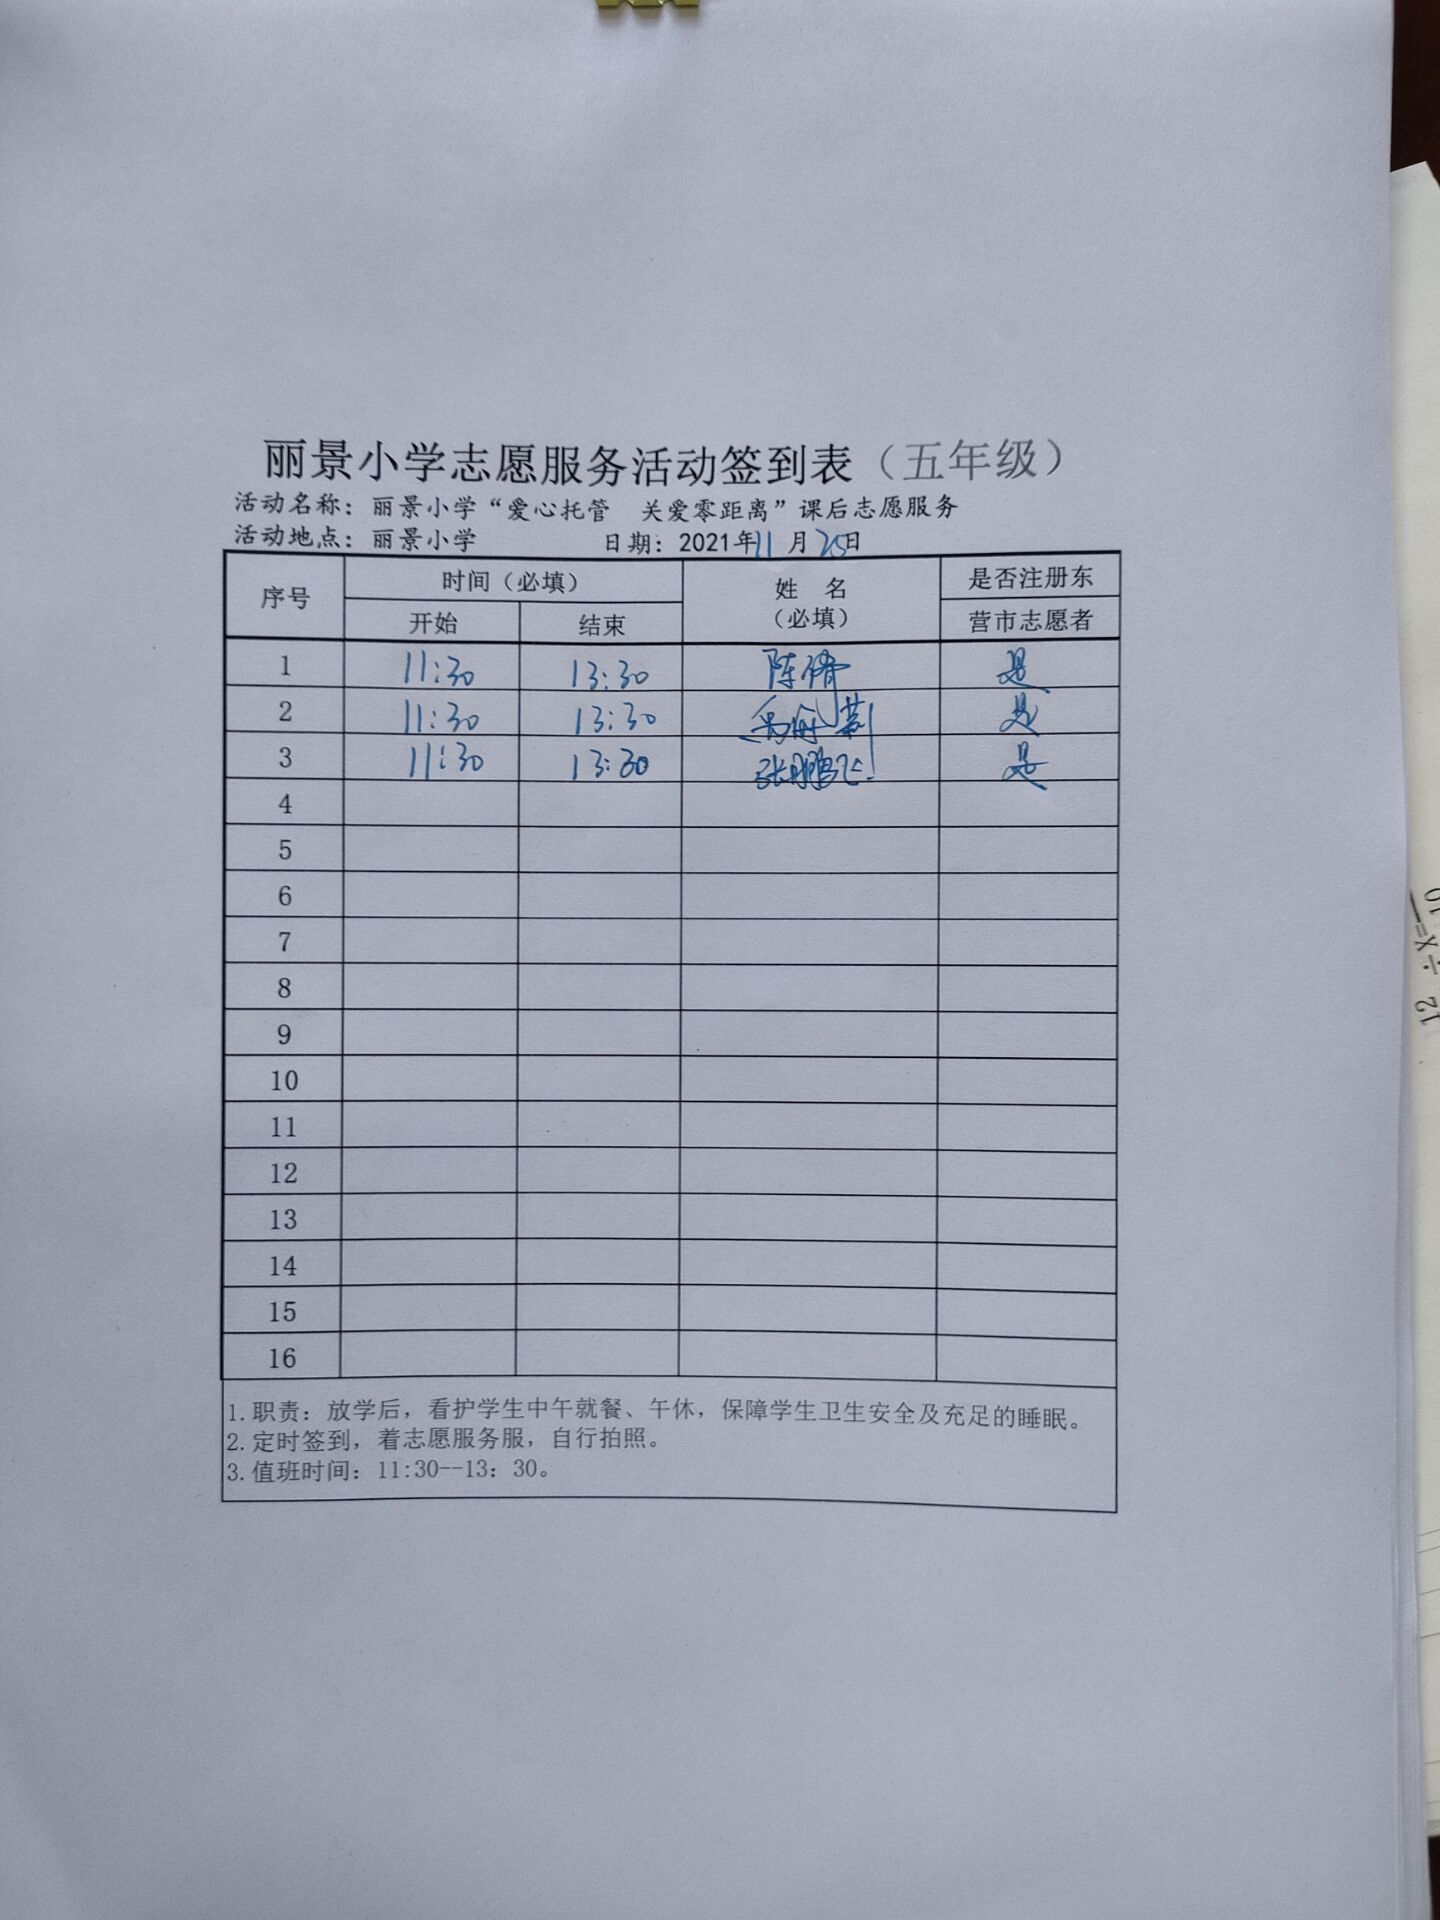 丽景小学志愿服务活动签到表（五年级）
活动名称：丽景小学“爱心托管 关爱零距离”课后志愿服务
活动地点：丽景小学 日期：2021年11月25日
序号 时间（必填） 姓 名 是否注册东
开始 结束 （必填） 营市志愿者
1 11:30 13:30 陈倩 是
2 11:30 13:30 是
3 11:30 13:30 张鹏飞 是
4
5
6
7
8
9
10
11
12
13
14
15
16
1.职责：放学后，看护学生中午就餐、午休，保障学生卫生安全及充足的睡眠。
2.定时签到，着志愿服务服，自行拍照。
3.值班时间：11:30--13：30。
12 ÷ x=